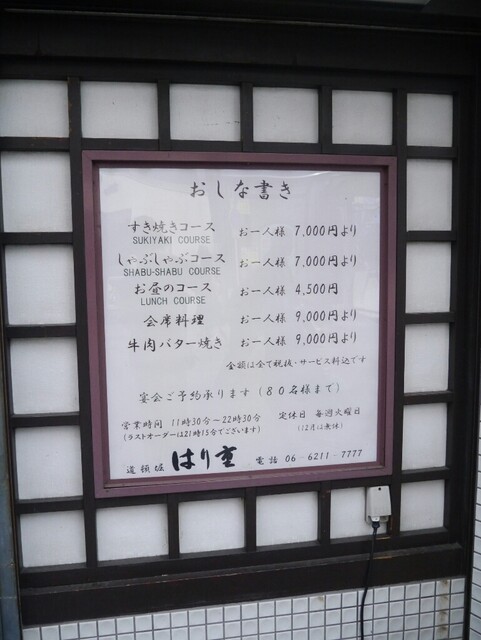 おしな書き
すき焼きコース お一人様 7,000円より
SUKIYAKI COURSE
しゃぶしゃぶコース お一人様 7,000円より
SHABU-SHABU COURSE
お昼のコース お一人様 4,500円
LUNCH COURSE
会席料理 お一人様 9,000円より
牛肉バター焼き お一人様 9,000円より
金額は全て税抜・サービス料込です
宴会ご予約承ります(80名様まで)
営業時間 11時30分〜22時30分 定休日 毎週火曜日
(ラストオーダーは21時15分でございます) (12月は無休)
道頓堀 はり重 電話 06-6211-7777